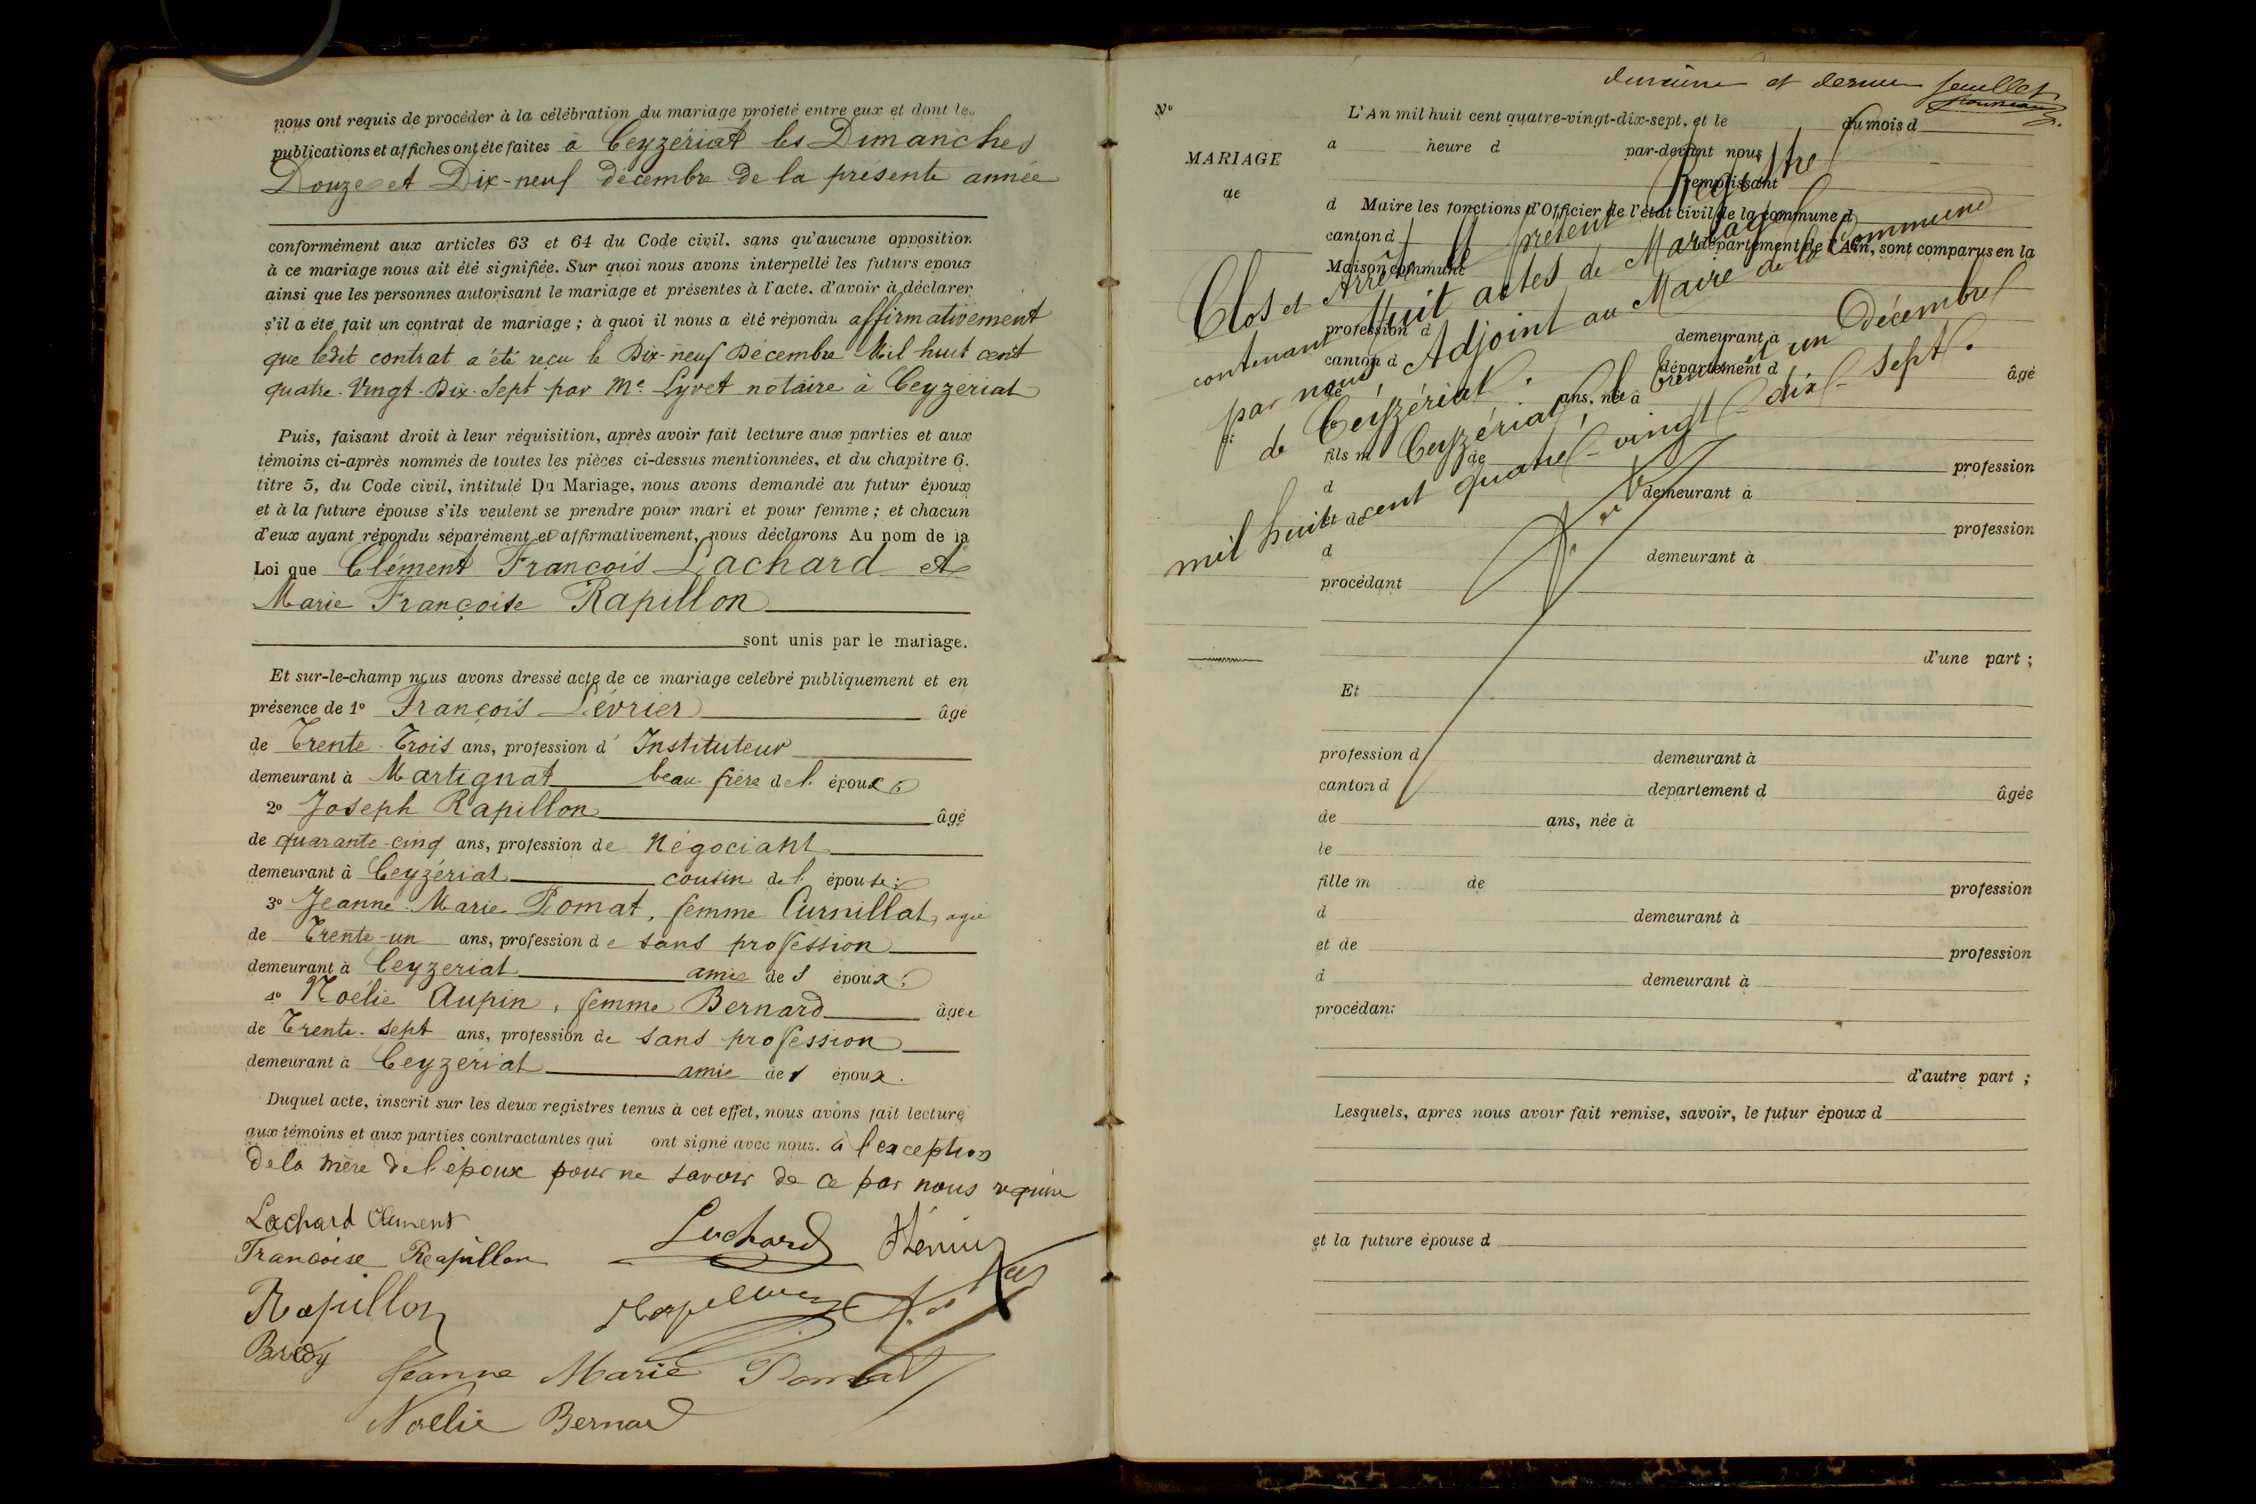 nous ont requis de procéder à la célébration du mariage projeté entre eux et dont les
publications et affiches ont été faites à Ceyzériat les Dimanches
Douze et Dix-neuf décembre de la présente année
conformément aux articles 63 et 64 du Code civil, sans qu'aucune opposition
à ce mariage nous ait été signifiée. Sur quoi nous avons interpellé les futurs epoux
ainsi que les personnes autorisant le mariage et présentes à l'acte, d'avoir à déclarer
s'il a été fait un contrat de mariage ; à quoi il nous a été répondu affirmativement
que ledit contrat a été reçu le Dix-neuf Décembre Mil huit cent
quatre-Vingt-Dix-Sept par Me Lyvet notaire à Ceyzériat
Puis, faisant droit à leur réquisition, après avoir fait lecture aux parties et aux
témoins ci-après nommés de toutes les pièces ci-dessus mentionnées, et du chapitre 6,
titre 5, du Code civil, intitulé Du Mariage, nous avons demandé au futur époux
et à la future épouse s'ils veulent se prendre pour mari et pour femme ; et chacun
d'eux ayant répondu séparément et affirmativement, nous déclarons Au nom de la
Loi que Clément François Lachard et
Marie Françoise Rapillon
sont unis par le mariage.
Et sur-le-champ nous avons dressé acte de ce mariage celebré publiquement et en
présence de 1° François Lévrier âgé
de Trente-Trois ans, profession d' Instituteur
demeurant à Martignat beau frère de l' époux
2° Joseph Rapillon âgé
de quarante-cinq ans, profession de Négociant
demeurant à Ceyzériat cousin de l' épouse ;
3° Jeanne-Marie Pomat, femme Curnillat, agée
de Trente-un ans, profession de sans profession
demeurant à Ceyzeriat amie des époux ;
4° Noélie Aupin, femme Bernard âgée
de Trente-sept ans, profession de sans profession
demeurant à Ceyzériat amie des époux.
Duquel acte, inscrit sur les deux registres tenus à cet effet, nous avons fait lecture
aux témoins et aux parties contractantes qui ont signé avec nous. à l'exception
de la mère de l'époux pour ne savoir de ce par nous requise
Lachard Clément
Lachard
Françoise Rapillon
Rapillon
Jeanne Marie Pomat
Noélie Bernard
et dernier feuillet
N°
MARIAGE
de
L'An mil huit cent quatre-vingt-dix-sept, et le du mois d
a heure d par-devant nous
remplissant
d Maire les fonctions d'Officier de l'état civil de la commune d
canton d département de l'Ain, sont comparus en la
Maison commune
profession d demeurant à
canton d département d âgé
de ans, né à
fils m de profession
d demeurant à
et de profession
d demeurant à
procédant
d'une part ;
Clos et Arrêté le présent Registre
contenant Huit actes de Mariage
par nous, Adjoint au Maire de la Commune
de Ceyzériat.
Ceyzériat, le trente et un Décembre
mil huit cent quatre-vingt-dix-sept.
Et
profession d demeurant à
canton d departement d âgée
de ans, née à
le
fille m de profession
d demeurant à
et de profession
d demeurant à
procédant
d'autre part ;
Lesquels, apres nous avoir fait remise, savoir, le futur époux d
et la future épouse d